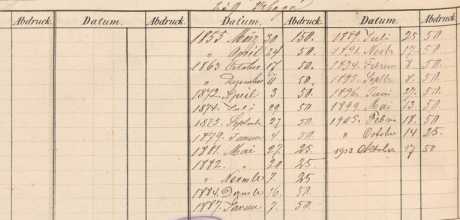 Abdruck. Datum. Abdruck. Datum. Abdruck. Datum. Abdruck.
1853 März 30 150.
" April 24 50.
1863 October 17 50
" Dezember 11 50.
1872 April 3 50.
1874 Juli 29 50.
1875 Septemb 27 50.
1879 Januar 4 50.
1881 Mai 27 25.
1882 " 20 25
" Novemb 7 25.
1884 Decmb 16. 50.
1887 Januar 7. 50.
1889 Juli 25 50
1891. Novbr 17 50.
1894. Februar 8 50.
1895. Septbr 8. 50.
1896. Juni 27. 50.
1899 Mai 13 50.
1905. Febr 18. 50
" October 14 25.
Oktober 17 50